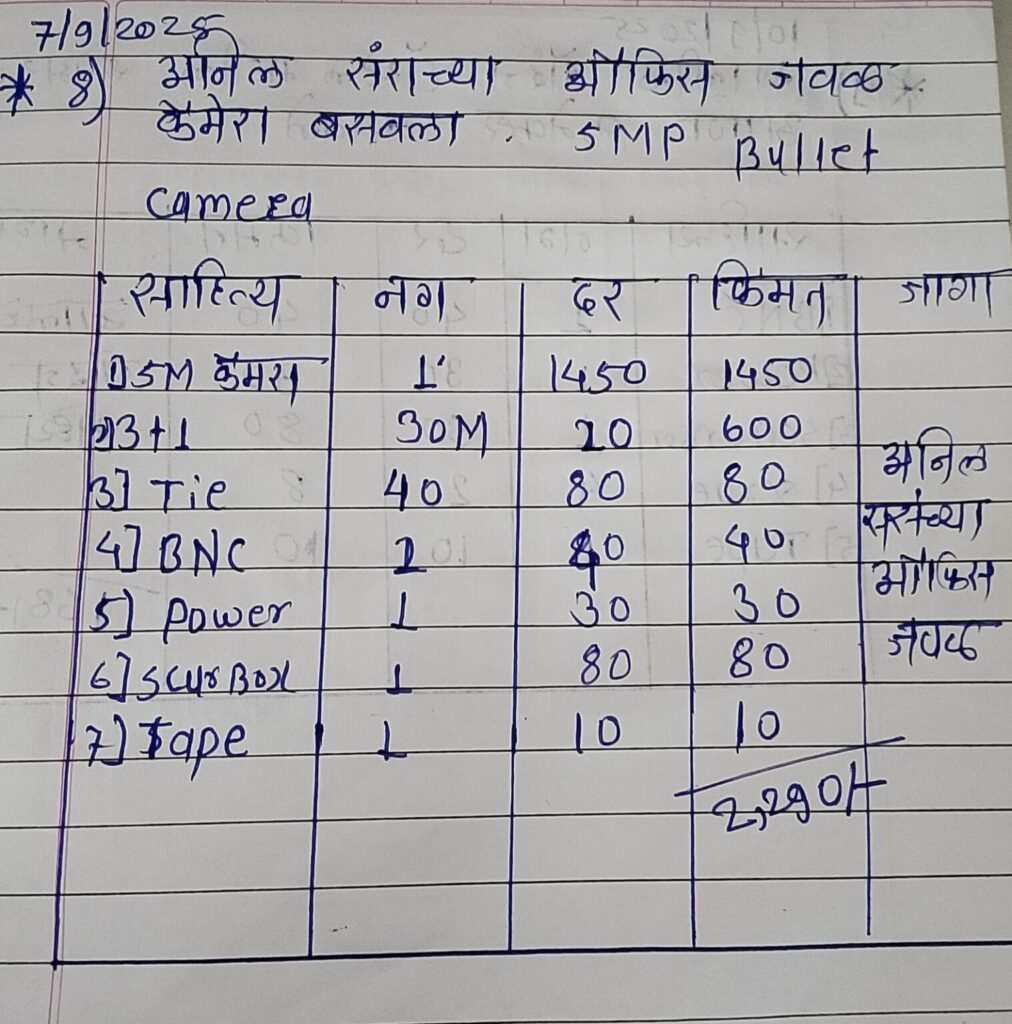 7/9/2025
* 8) अनिल सरांच्या ऑफिस जवळ
कॅमेरा बसवला . 5MP Bullet
camera
साहित्य नग दर किंमत जागा
1) 5M कॅमेरा 1 1450 1450
2) 3+1 30M 20 600
3] Tie 40 80 80 अनिल
4] BNC 2 40 40. सरांच्या
5] power 1 30 30 ऑफिस
6] scurBox 1 80 80 जवळ
7] Tape 1 10 10
2,290/-